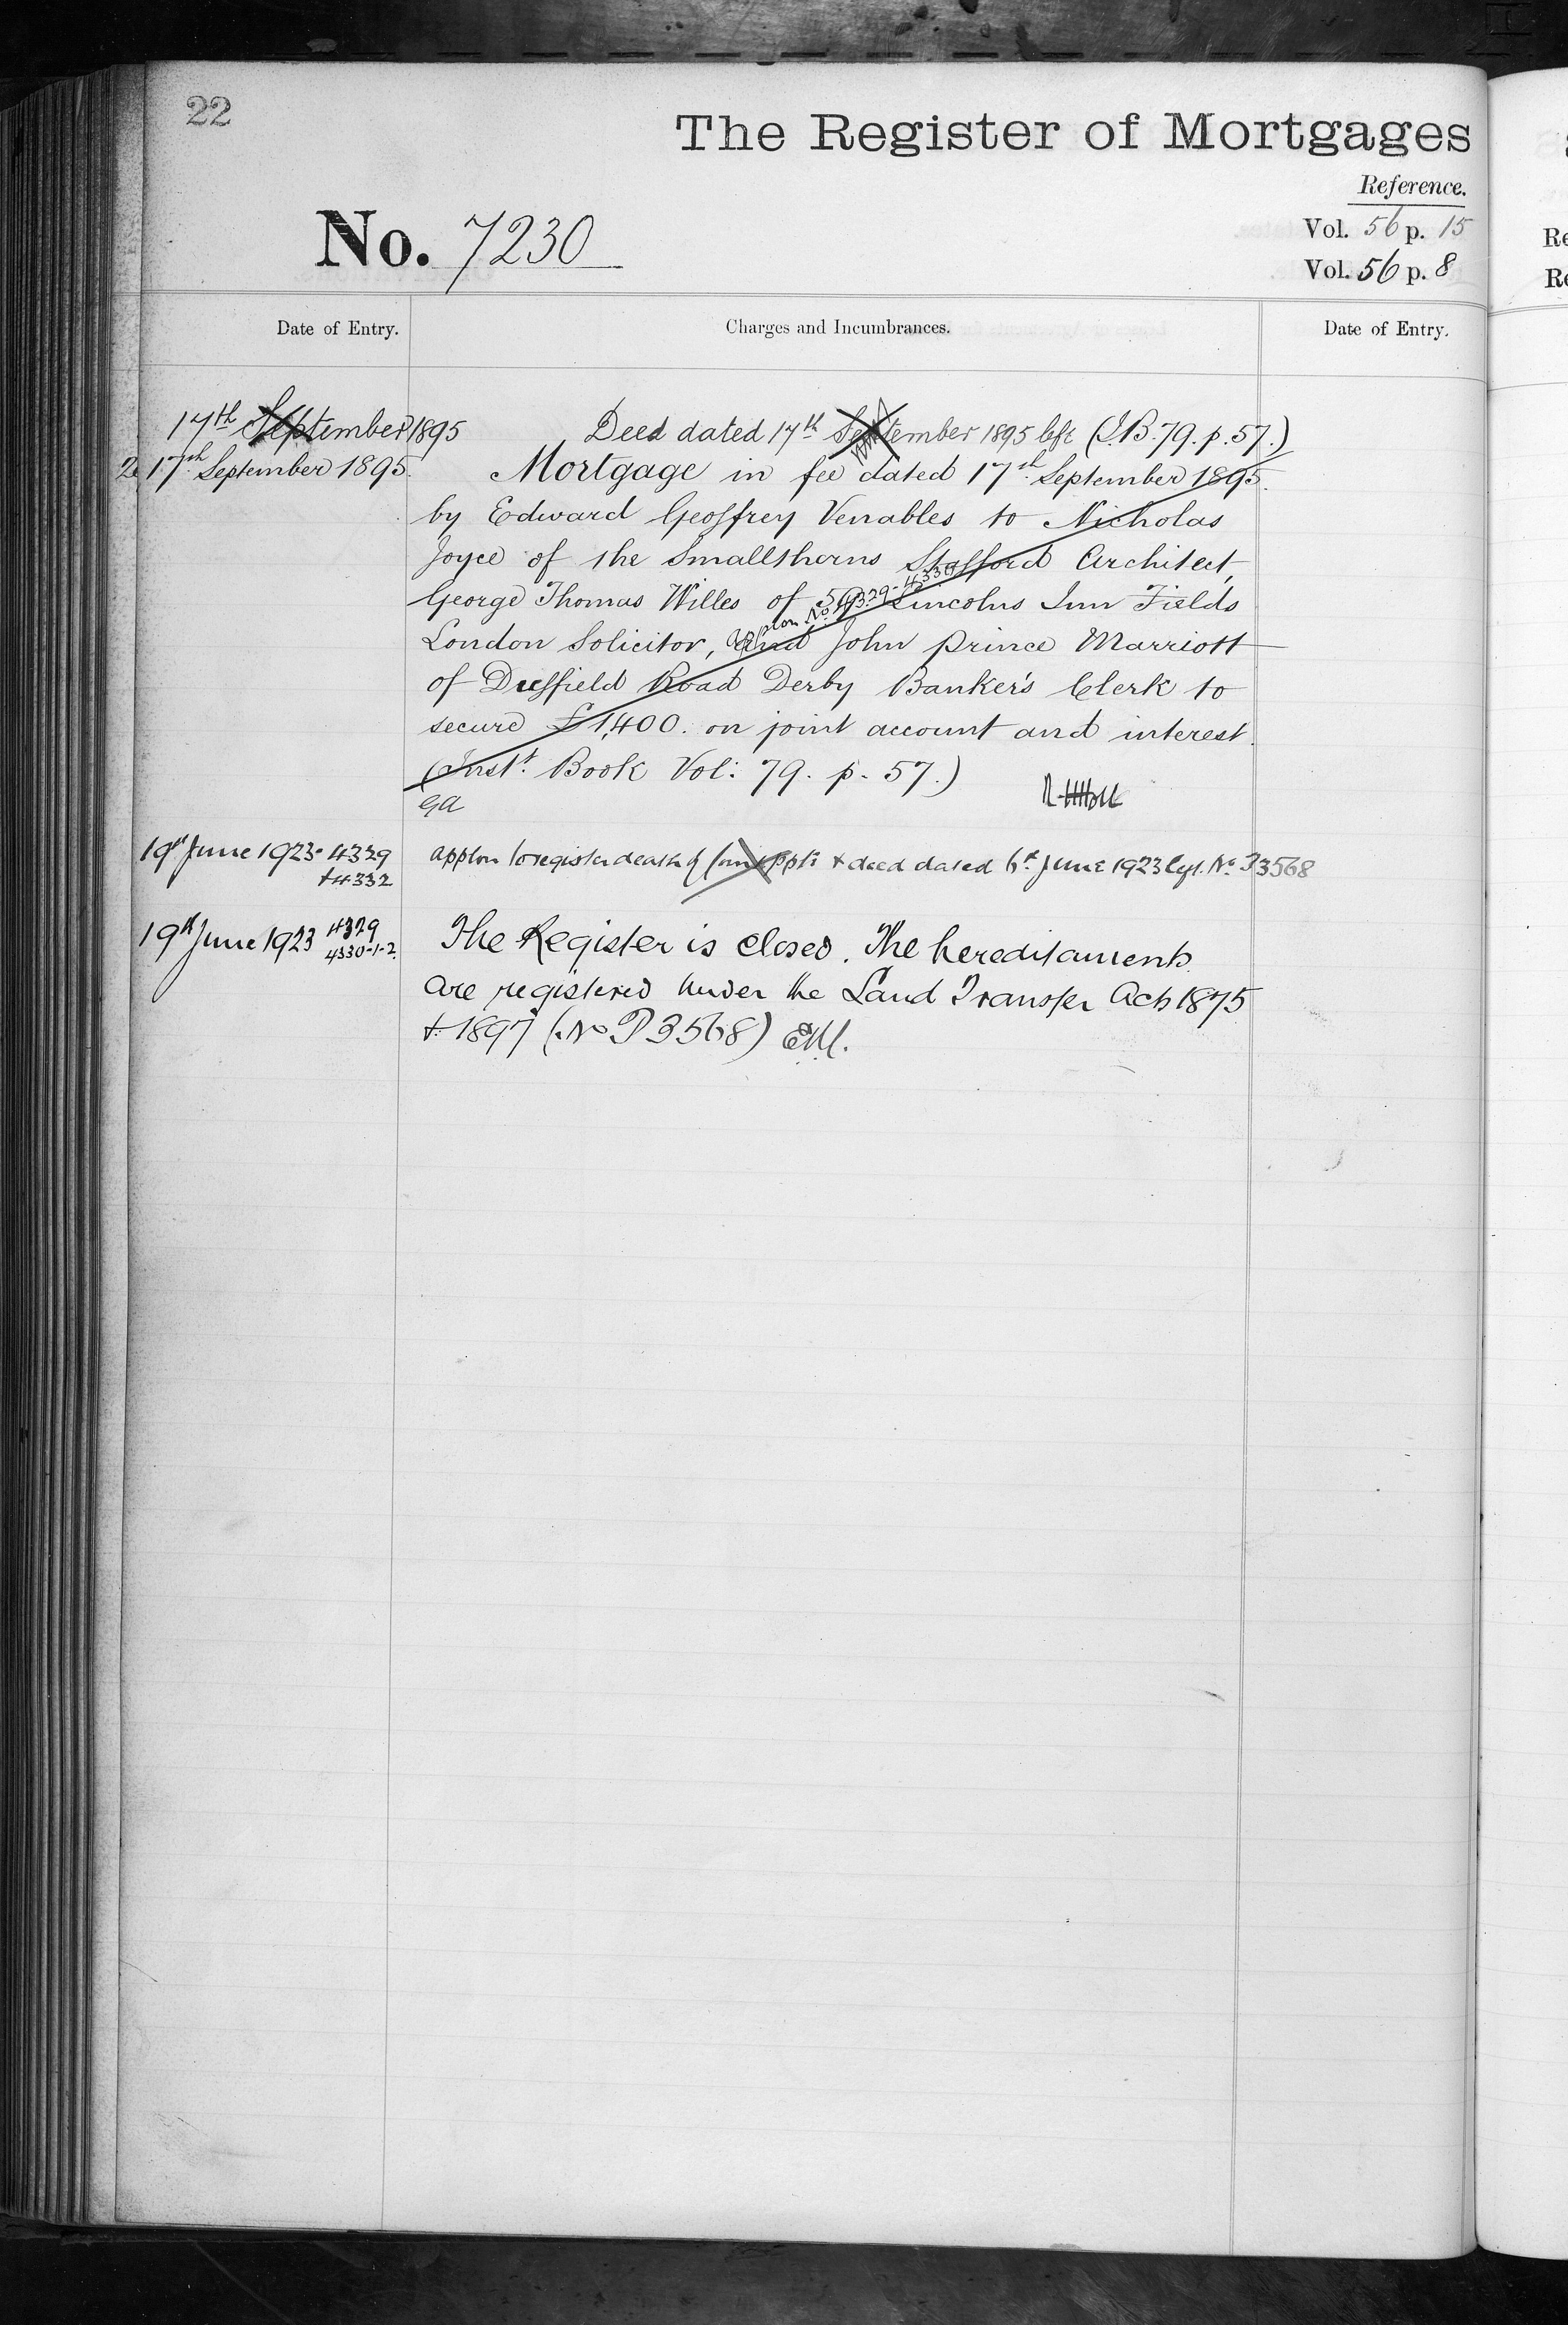 22
The Register of Mortgages
Reference.
No. 7230
Vol. 56 p. 15
Vol. 56 p. 8
Date of Entry.
Charges and Incumbrances.
Date of Entry.
17th September 1895
Deed dated 17th September 1895 left (I.B. 79. p. 57.)
17th September 1895.
Mortgage in fee dated 17th September 1895.
by Edward Geoffrey Venables to Nicholas
Joyce of the Smallthorns Stafford Architect,
George Thomas Willes of 59 Lincolns Inn Fields
Appln No. 4329-4330
London Solicitor, and John Prince Marriott
of Duffield Road Derby Banker's Clerk to
secure £1,400. on joint account and interest.
(Inst. Book Vol: 79. p. 57.)
GA
19th June 1923 4329
+ 4332
applon to register death of joint appts + deed dated 6th June 1923 No. P3568
19th June 1923 4329
4330-1-2.
The Register is closed. The hereditaments
are registered under the Land Transfer Acts 1875
+ 1897 (No P3568) EM.
Re
Re